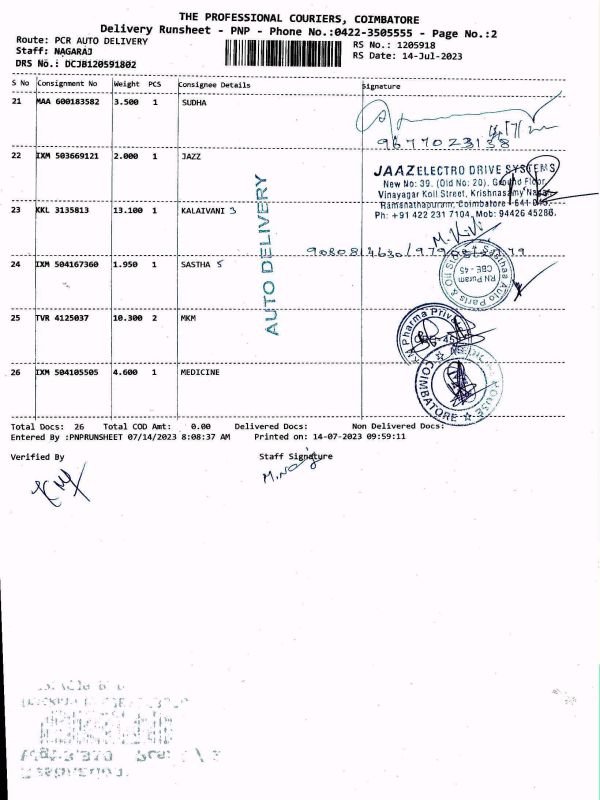 THE PROFESSIONAL COURIERS, COIMBATORE
Delivery Runsheet - PNP - Phone No.:0422-3505555 - Page No.:2
Route: PCR AUTO DELIVERY
RS No.: 1205918
Staff: NAGARAJ
RS Date: 14-Jul-2023
DRS No.: DCJB120591802
S No Consignment No Weight PCS Consignee Details Signature
21 MAA 600183582 3.500 1 SUDHA
9677023138
22 IXM 503669121 2.000 1 JAZZ
JAAZ ELECTRO DRIVE SYSTEMS
New No: 39, (Old No: 20), Ground Floor,
Vinayagar Koil Street, Krishnasamy Nagar
Ramanathapuram, Coimbatore - 641 045.
Ph: +91 422 231 7104, Mob: 94426 45286.
23 KKL 3135813 13.100 1 KALAIVANI 3
24 IXM 504167360 1.950 1 SASTHA 5
Sasthaa Auto Parts & Oil
RN Puram
CBE - 45
AUTO DELIVERY
25 TVR 4125037 10.300 2 MKM
Pharma Private
26 IXM 504105505 4.600 1 MEDICINE
COIMBATORE
Total Docs: 26 Total COD Amt: 0.00 Delivered Docs: Non Delivered Docs:
Entered By :PNPRUNSHEET 07/14/2023 8:08:37 AM Printed on: 14-07-2023 09:59:11
Verified By Staff Signature